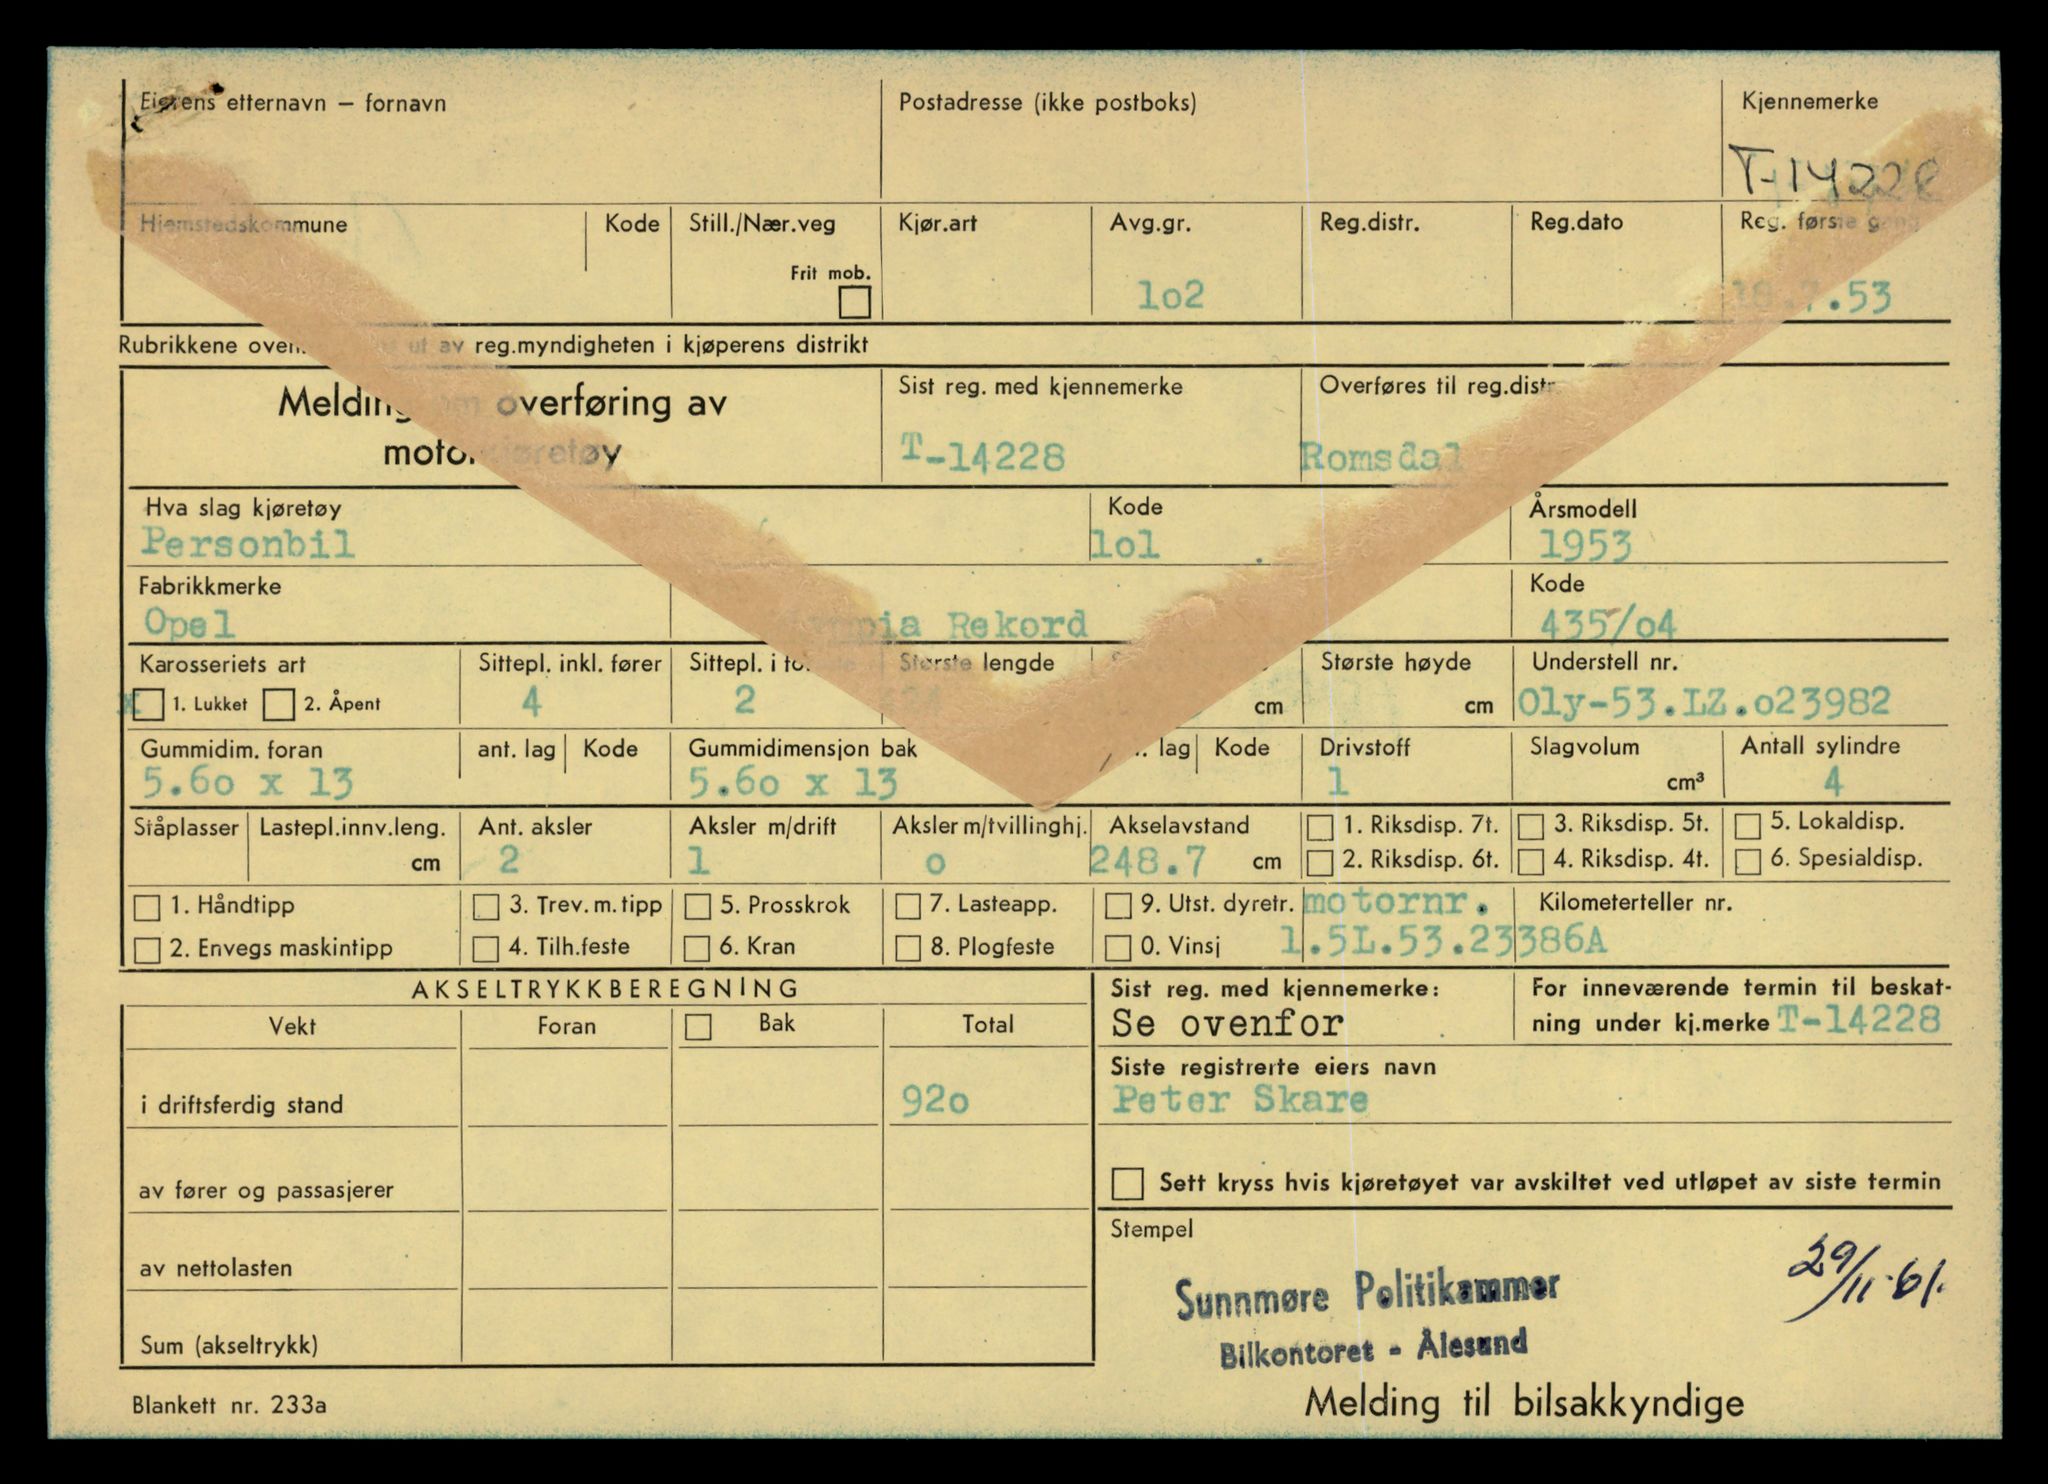 Eierens etternavn – fornavn
Postadresse (ikke postboks)
Kjennemerke
T-14228
Hjemstedskommune
Kode
Still./Nær.veg
Frit mob.
Kjør.art
Avg.gr.
1o2
Reg.distr.
Reg.dato
Reg. første gang
18.7.53
Rubrikkene ut av reg.myndigheten i kjøperens distrikt
Melding om overføring av
motorkjøretøy
Sist reg. med kjennemerke
T-14228
Overføres til reg.distr.
Romsdal
Hva slag kjøretøy
Personbil
Kode
1o1
Årsmodell
1953
Fabrikkmerke
Opel
Rekord
Kode
435/o4
Karosseriets art
x 1. Lukket 2. Åpent
Sittepl. inkl. fører
4
Sittepl. i
2
Største lengde
cm
Største høyde
cm
Understell nr.
Oly-53.LZ.o23982
Gummidim. foran
5.6o x 13
ant. lag
Kode
Gummidimensjon bak
5.6o x 13
lag
Kode
Drivstoff
1
Slagvolum
cm³
Antall sylindre
4
Ståplasser
Lastepl.innv.leng.
cm
Ant. aksler
2
Aksler m/drift
1
Aksler m/tvillinghj.
o
Akselavstand
248.7 cm
1. Riksdisp. 7t.
2. Riksdisp. 6t.
3. Riksdisp. 5t.
4. Riksdisp. 4t.
5. Lokaldisp.
6. Spesialdisp.
1. Håndtipp
2. Envegs maskintipp
3. Trev. m. tipp
4. Tilh.feste
5. Prosskrok
6. Kran
7. Lasteapp.
8. Plogfeste
9. Utst. dyretr.
0. Vinsj
motornr.
1.5L.53.23386A
Kilometerteller nr.
AKSELTRYKKBEREGNING
Vekt
Foran
Bak
Total
i driftsferdig stand
92o
av fører og passasjerer
av nettolasten
Sum (akseltrykk)
Sist reg. med kjennemerke:
Se ovenfor
For inneværende termin til beskat-
ning under kj.merke T-14228
Siste registrerte eiers navn
Peter Skare
Sett kryss hvis kjøretøyet var avskiltet ved utløpet av siste termin
Stempel
Sunnmøre Politikammer
Bilkontoret - Ålesund
29/11-61.
Blankett nr. 233a
Melding til bilsakkyndige